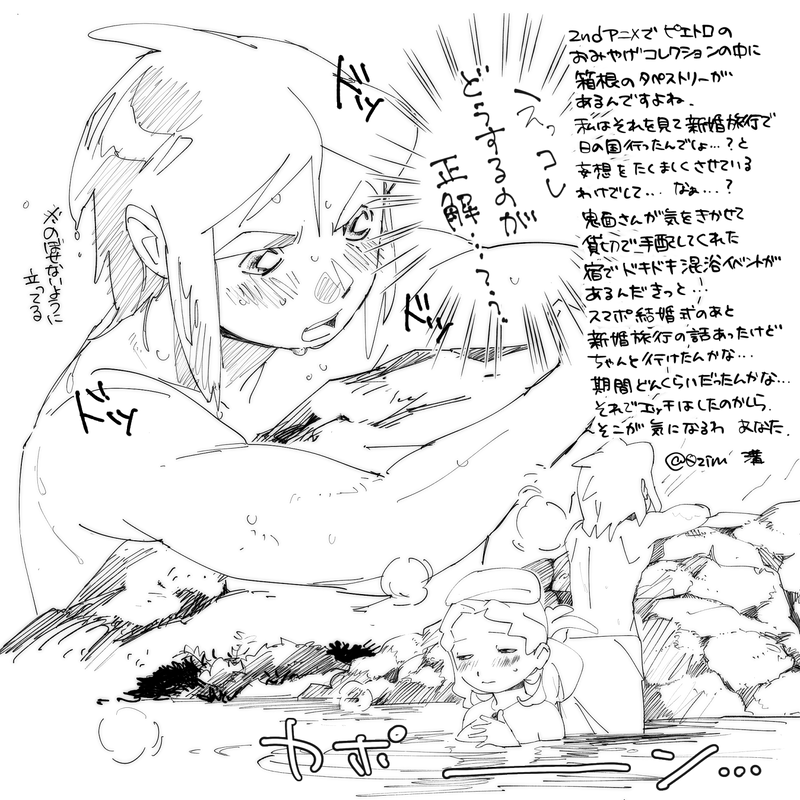 2ndアニメで ピエトロの
おみやげコレクションの中に
箱根のタペストリーが
あるんですよね.
私はそれを見て新婚旅行で
日の国行ったんでしょ…?と
妄想をたくましくさせている
わけでして… なぁ…?
鬼面さんが気をきかせて
貸切で手配してくれた
宿でドキドキ混浴イベントが
あるんだきっと…!
スマポ結婚式のあと
新婚旅行の話あったけど
ちゃんと行けたんかな…
期間どんくらいだったんかな…
それでエッチはしたのかしら
そこが気になるわ あなた.
えっコレ
どうするのが
正解…??
ドッ
ドッ
ドッ
※のぼせないように
立ってる
カポーーン…